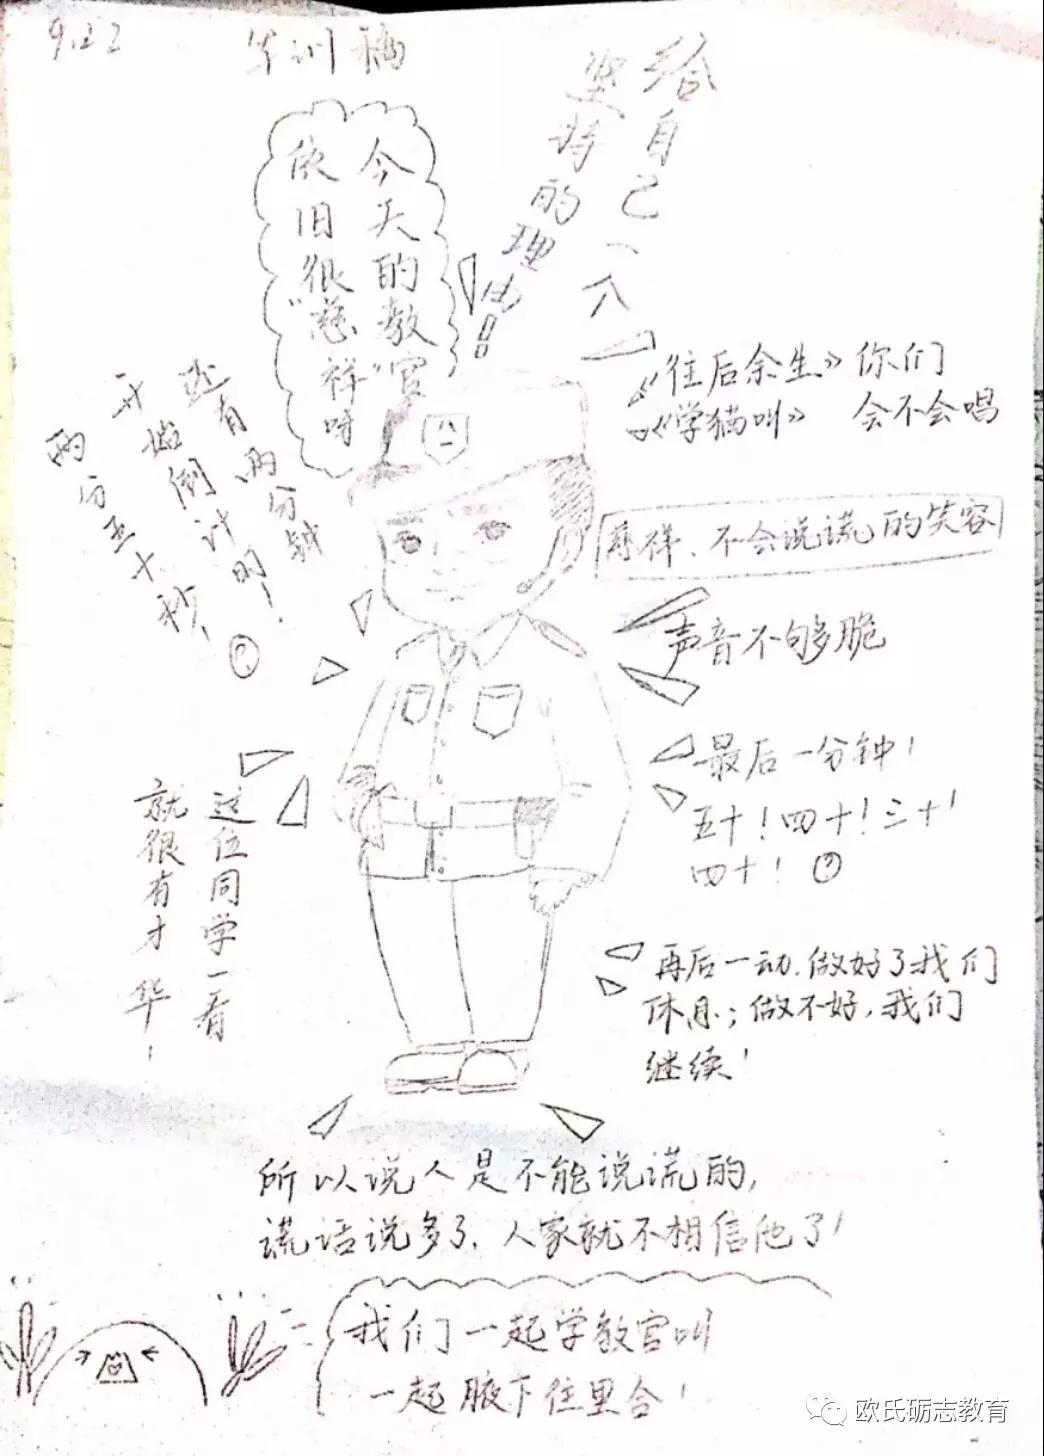 9.22
军训稿
给自己一个
坚持的理由!!
今天的教官
依旧很“慈祥”呀
《往后余生》你们
《学猫叫》 会不会唱
还有两分钟
开始倒计时!
两分五十秒、?
慈祥、不会说谎的笑容
声音不够脆
最后一分钟!
五十!四十!三十!
四十!?
这位同学一看
就很有才华!
再后一动.做好了我们
休息;做不好,我们
继续!
所以说人是不能说谎的,
谎话说多了、人家就不相信他了!
我们一起学教官叫
一起腋下往里合!
欧氏砺志教育